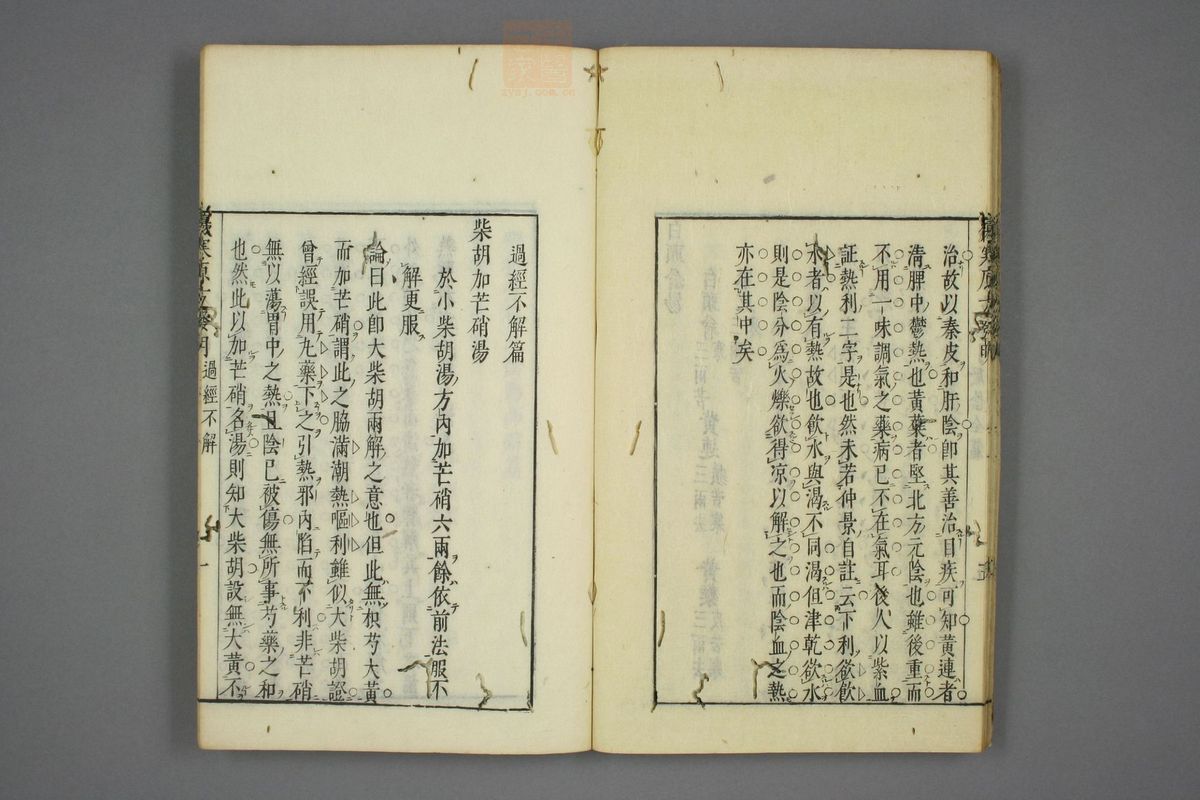 治故以秦皮和肝陰即其善治目疾可知黃連者
清脾中鬱熱也黃蘗者堅北方元陰也雖後重而
不用一味調氣之藥病已不在氣耳後人以紫血
証熱利二字是也然未若仲景自註云下利欲飲
水者以有熱故也飲水與渴不同渴但津乾欲水
則是陰分為火爍欲得涼以解之也而陰血之熱
亦在其中矣
過經不解篇
柴胡加芒硝湯
於小柴胡湯方內加芒硝六兩餘依前法服不
解更服
論曰此即大柴胡兩解之意也但此無枳芍大黃
而加芒硝謂此之脇滿潮熱嘔利雖似大柴胡證
曾經誤用丸藥下之引熱邪內陷而不利非芒硝
無以蕩胃中之熱且陰已被傷無所事芍藥之和
也然此以加芒硝名湯則知大柴胡設無大黃不
過經不解
zysj.com.cn